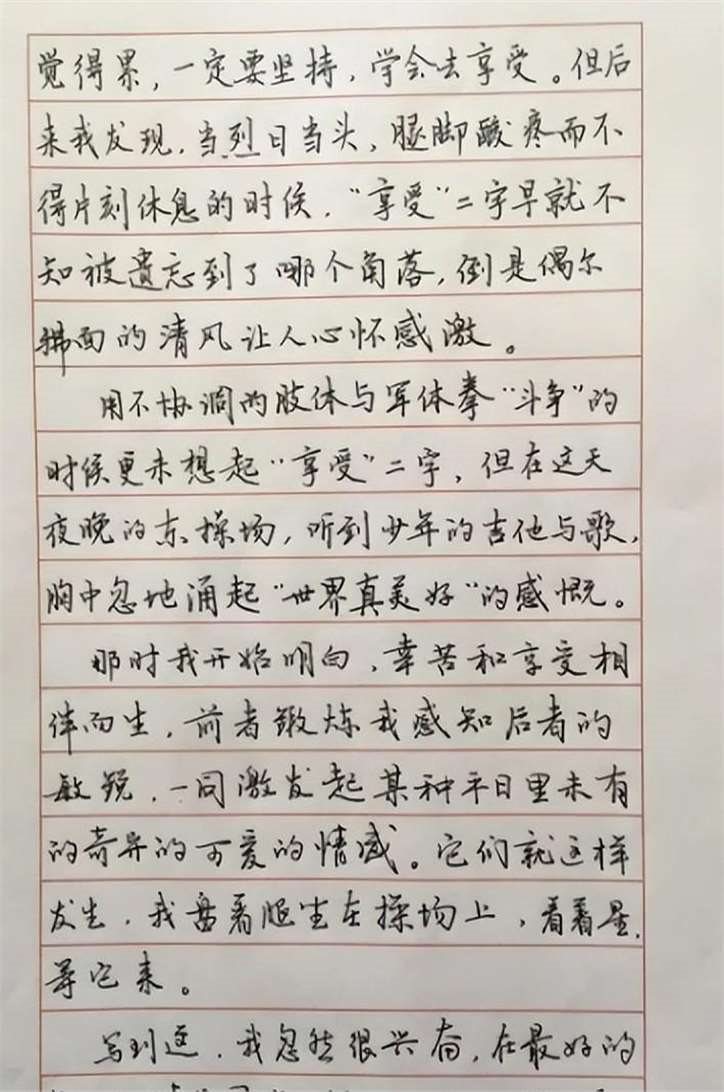 觉得累，一定要坚持，学会去享受。但后
来我发现，当烈日当头，腿脚酸疼而不
得片刻休息的时候，“享受”二字早就不
知被遗忘到了哪个角落，倒是偶尔
拂面的清风让人心怀感激。
用不协调的肢体与军体拳“斗争”的
时候更未想起“享受”二字，但在这天
夜晚的东操场，听到少年的吉他与歌，
胸中忽地涌起“世界真美好”的感慨。
那时我开始明白，辛苦和享受相
伴而生，前者锻炼我感知后者的
敏锐，一同激发起某种平日里未有
的奇异的可爱的情感。它们就这样
发生，我盘着腿坐在操场上，看着星，
等它来。
写到这，我忽然很兴奋，在最好的